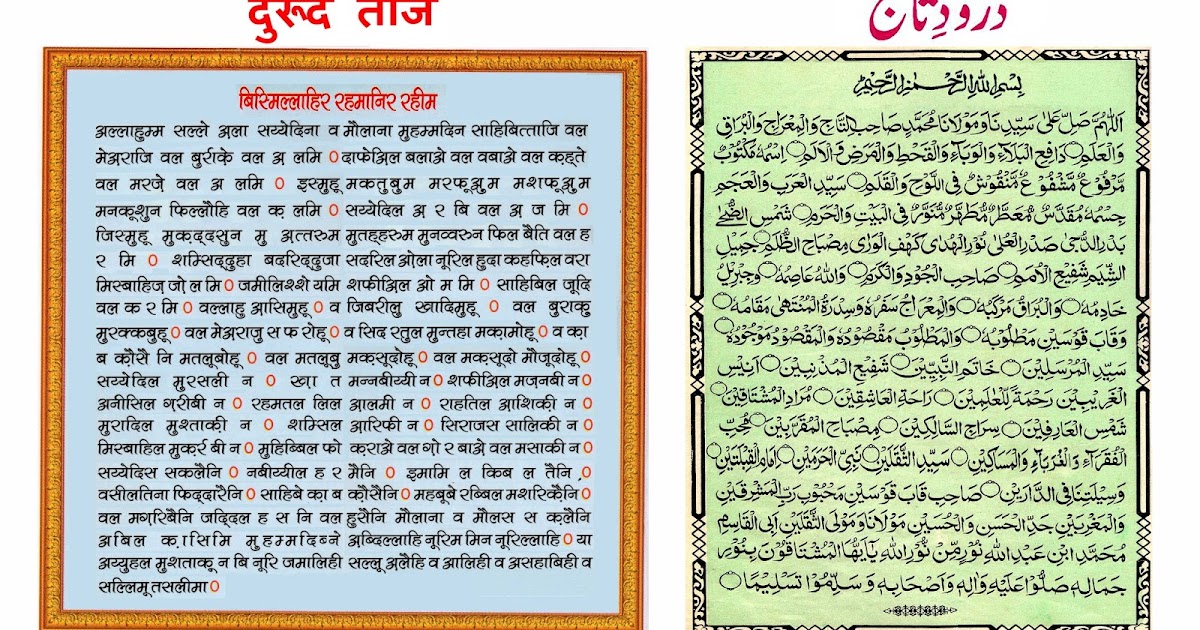 दुरूद ताज
बिस्मिल्लाहिर रहमानिर रहीम
अल्लाहुम्म सल्ले अला सय्येदिना व मौलाना मुहम्मदिन साहिबित्ताजि वल
मेअराजि वल बुर्राक़े वल अ लमि ० दाफेअिल बलाअे वल वबाअे वल कह्ते
वल मरजे़ वल अ लमि ० इस्मुहू मकतुबुम मरफूअुम मशफूअुम
मनक़ूशुन फिल्लौहि वल क़ लमि ० सय्येदिल अ र बि वल अ ज मि ०
जिस्मुहू मुक़द्दसुन मु अत्तरुम मुतह्हरुम मुनव्वरुन फिल बैति वल ह
र मि ० शम्सिद्दुहा बदरिद्दुजा सदरिल ओला नूरिल हुदा कहफ़िल वरा
मिस्बाहिज़ जो़ ल मि ० जमीलिश्शे यमि शफीअिल ओ म मि ० साहिबिल जूदि
वल क र मि ० वल्लाहु आसिमुहू ० व जिबरीलु ख्वादिमुहू ० वल बुराकु
मुरक्कबुहू ० वल मेअराजु स फ रोहू ० व सिद रतुल मुन्तहा मक़ामोहू ० व क़ा
ब क़ौसै नि मतलूबोहू ० वल मतलूबु मक़सूदोहू ० वल मक़सूदो मौजूदोहू ०
सय्येदिल मुरसली न ० ख़ा त मन्नबीय्यी न ० शफीअिल मज़नबी न ०
अनीसिल ग़रीबी न ० रहमतल लिल आलमी न ० राहतिल आशिक़ी न ०
मुरादिल मुश्ताक़ी न ० शम्सिल आरिफी न ० सिराजस सालिकी न ०
मिस्बाहिल मुक़र्र बी न ० मुहिब्बिल फो क़राअे वल गो़ र बाअे वल मसाकी न ०
सय्येदिस सकलैनि ० नबीय्यील ह र मैनि ० इमामि ल क़िब ल तैनि ०
वसीलतिना फिद्दारैनि ० साहिबे क़ा ब क़ौसैनि ० महबूबे रब्बिल मशरिक़ैनि ०
वल मग़रिबैनि जद्दिल ह स नि वल हुसैनि मौलाना व मौलस स क़लैनि
अबिल क़ासिमि मुहम्मदिब्ने अब्दिल्लाहि नूरिम मिन नूरिल्लाहि ० या
अय्युहल मुशताक़ू न बि नूरि जमालिही सल्लू अलैहि व आलिही व असहाबिही व
सल्लिमू तसलीमा ०
درودِ تاج
بِسْمِ اللهِ الرَّحْمٰنِ الرَّحِيْمِ
اَللّٰهُمَّ صَلِّ عَلٰى سَيِّدِنَا وَمَوْلَانَا مُحَمَّدٍ صَاحِبِ التَّاجِ وَالْمِعْرَاجِ وَالْبُرَاقِ
وَالْعَلَمِ○ دَافِعِ الْبَلَآءِ وَالْوَبَآءِ وَالْقَحْطِ وَالْمَرَضِ وَالْاَلَمِ○ اِسْمُهٗ مَكْتُوْبٌ
مَّرْفُوْعٌ مَّشْفُوْعٌ مَّنْقُوْشٌ فِى اللَّوْحِ وَالْقَلَمِ○ سَيِّدِ الْعَرَبِ وَالْعَجَمِ
جِسْمُهٗ مُقَدَّسٌ مُّعَطَّرٌ مُّطَهَّرٌ مُّنَوَّرٌ فِى الْبَيْتِ وَالْحَرَمِ○ شَمْسِ الضُّحٰى
بَدْرِ الدُّجٰى صَدْرِ الْعُلٰى نُوْرِ الْهُدٰى كَهْفِ الْوَرٰى مِصْبَاحِ الظُّلَمِ○ جَمِيْلِ
الشِّيَمِ شَفِيْعِ الْاُمَمِ○ صَاحِبِ الْجُوْدِ وَالْكَرَمِ○ وَاللهُ عَاصِمُهٗ○ وَجِبْرِيْلُ
خَادِمُهٗ○ وَالْبُرَاقُ مَرْكَبُهٗ○ وَالْمِعْرَاجُ سَفَرُهٗ وَسِدْرَةُ الْمُنْتَهٰى مَقَامُهٗ○
وَقَابَ قَوْسَيْنِ مَطْلُوْبُهٗ○ وَالْمَطْلُوْبُ مَقْصُوْدُهٗ وَالْمَقْصُوْدُ مَوْجُوْدُهٗ○
سَيِّدِ الْمُرْسَلِيْنَ○ خَاتَمِ النَّبِيِّيْنَ○ شَفِيْعِ الْمُذْنِبِيْنَ○ اَنِيْسِ
الْغَرِيْبِيْنَ رَحْمَةٍ لِّلْعٰلَمِيْنَ○ رَاحَةِ الْعَاشِقِيْنَ○ مُرَادِ الْمُشْتَاقِيْنَ○
شَمْسِ الْعَارِفِيْنَ○ سِرَاجِ السَّالِكِيْنَ○ مِصْبَاحِ الْمُقَرَّبِيْنَ○ مُحِبِّ
الْفُقَرَآءِ وَالْغُرَبَآءِ وَالْمَسَاكِيْنِ○ سَيِّدِ الثَّقَلَيْنِ○ نَبِيِّ الْحَرَمَيْنِ○ اِمَامِ الْقِبْلَتَيْنِ○
وَسِيْلَتِنَا فِى الدَّارَيْنِ○ صَاحِبِ قَابَ قَوْسَيْنِ مَحْبُوْبِ رَبِّ الْمَشْرِقَيْنِ
وَالْمَغْرِبَيْنِ جَدِّ الْحَسَنِ وَالْحُسَيْنِ مَوْلَانَا وَمَوْلَى الثَّقَلَيْنِ اَبِى الْقَاسِمِ
مُحَمَّدِ ابْنِ عَبْدِ اللهِ نُوْرٍ مِّنْ نُّوْرِ اللهِ يَآاَيُّهَا الْمُشْتَاقُوْنَ بِنُوْرِ
جَمَالِهٖ صَلُّوْا عَلَيْهِ وَاٰلِهٖ وَاَصْحَابِهٖ وَسَلِّمُوْا تَسْلِيْمًا○